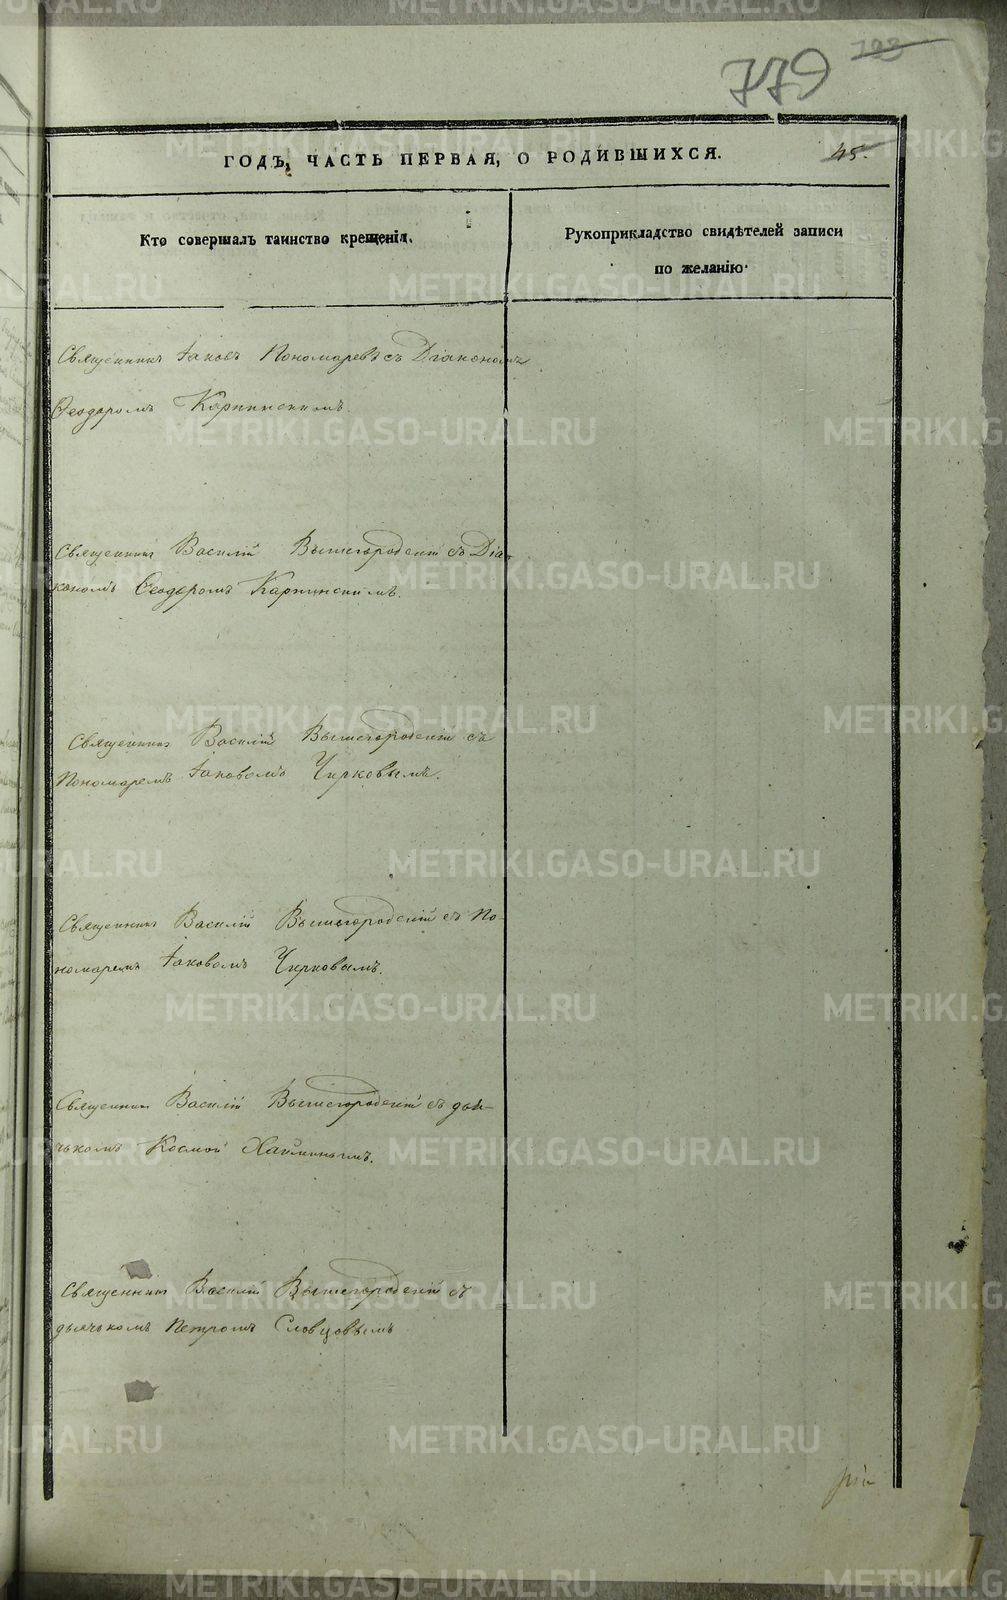 779 723
ГОДЪ, ЧАСТЬ ПЕРВАЯ, О РОДИВШИХСЯ. 45.
Кто совершалъ таинство крещенія.
Рукоприкладство свидѣтелей записи
по желанію.
Священникъ Іаковъ Пономаревъ съ Діакономъ
Ѳеодоромъ Карпинскимъ.
Священникъ Василій Вышегородскій съ Діа-
кономъ Ѳеодоромъ Карпинскимъ.
Священникъ Василій Вышегородскій съ
Пономаремъ Іаковомъ Чирковымъ.
Священникъ Василій Вышегородскій съ По-
номаремъ Іаковомъ Чирковымъ.
Священникъ Василій Вышегородскій съ дья-
чькомъ Космой
Священникъ Василій Вышегородскій съ
дьячькомъ Петромъ Словцовымъ
METRIKI.GASO-URAL.RU